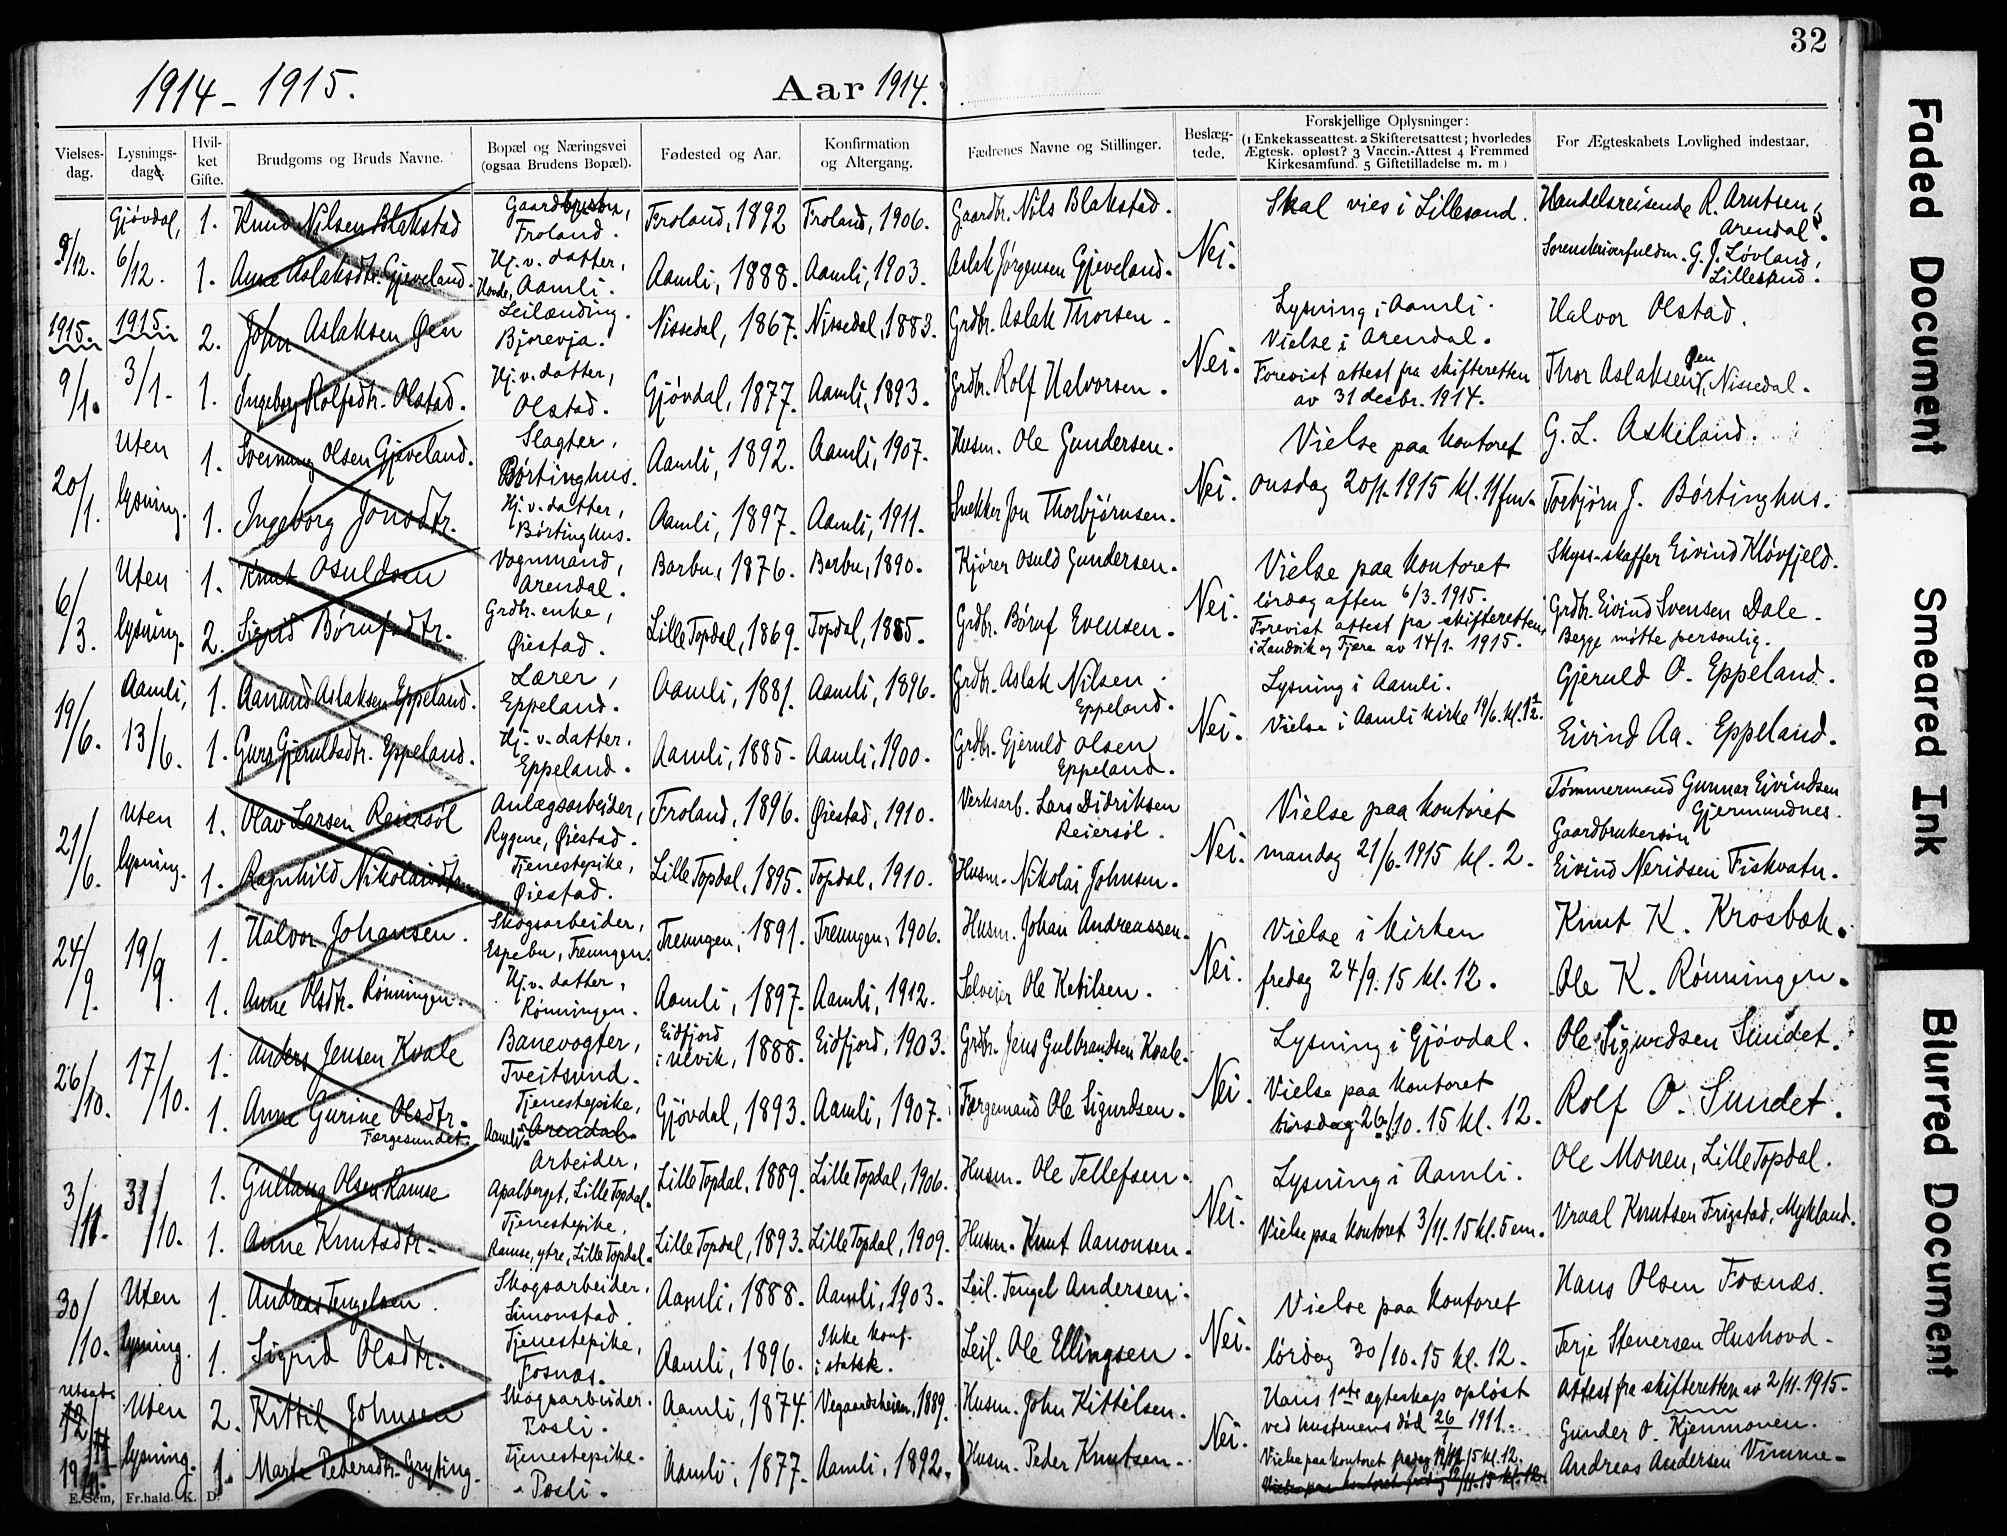 32
1914 - 1915.
Aar 1914.
Vielses-dag.
Lysnings-dage.
Hvil-ket Gifte.
Brudgoms og Bruds Navne.
Bopæl og Næringsvei (ogsaa Brudens Bopæl).
Fødested og Aar.
Konfirmation og Altergang.
Fædrenes Navne og Stillinger.
Beslæg-tede.
Forskjellige Oplysninger:
(1 Enkekasseattest. 2 Skifteretsattest; hvorledes
Ægtesk. opløst? 3 Vaccin.-Attest 4 Fremmed
Kirkesamfund. 5 Giftetilladelse m. m.)
For Ægteskabets Lovlighed indestaar.
9/12.
Gjövdal, 6/12.
1. Knud Nilsen Blakstad
Froland.
Froland, 1892
Froland, 1906.
Gaardbr. Nils Blakstad.
Nei.
Skal vies i Lillesand.
Handelsreisende R. Arntsen,
Arendal.
1. Anne Aslaksdtr. Gjeveland.
Hj. v. datter,
Aamli.
Aamli, 1888.
Aamli, 1903.
Aslak Jørgensen Gjeveland.
Sorenskriverfuldm. G. J. Løvland,
Lillesand.
1915.
9/1.
1915.
3/1.
2. John Aslaksen Øen
Leilænding.
Bjorevja.
Nissedal, 1867.
Nissedal, 1883.
Grdbr. Aslak Thorsen.
Nei.
Lysning i Aamli.
Vielse i Arendal.
Halvor Olstad.
1. Ingeborg Rolfsdtr. Olstad.
Hj. v. datter,
Olstad.
Gjövdal, 1877.
Aamli, 1893.
Grdbr. Rolf Halvorsen.
Forevist attest fra skifteretten
av 31 decbr. 1914.
Thor Aslaksen Øen, Nissedal.
20/1.
Uten lysning.
1. Sveinung Olsen Gjeveland.
Slagter,
Børtinghus.
Aamli, 1892.
Aamli, 1907.
Husm. Ole Gundersen.
Nei.
Vielse paa kontoret
onsdag 20/1. 1915 kl. 11 fm.
G. L. Askeland.
1. Ingeborg Jonsdtr.
Hj. v. datter,
Børtinghus.
Aamli, 1897.
Aamli, 1911.
Snekker Jon Thorbjørnsen.
Torbjørn J. Børtinghus.
6/3.
Uten lysning.
1. Knut Osuldsen
Vognmand,
Arendal.
Barbu, 1876.
Barbu, 1890.
Kjører Osuld Gundersen.
Nei.
Vielse paa kontoret
lördag aften 6/3. 1915.
Skyss-skaffer Eivind Kløvfjeld.
2. Sigrid Börufsdtr.
Grdbr. enke,
Øiestad.
Lille Topdal, 1869.
Topdal, 1885.
Grdbr. Böruf Evensen.
Forevist attest fra skifteretten
i Landvik og Fjære av 14/1. 1915.
Grdbr. Eivind Svensen Dale.
Begge møtte personlig.
19/6.
Aamli, 13/6.
1. Aanund Aslaksen Eppeland.
Lærer,
Eppeland.
Aamli, 1881.
Aamli, 1896.
Grdbr. Aslak Nilsen
Eppeland.
Nei.
Lysning i Aamli.
Vielse i Aamli kirke 19/6. kl.
Gjeruld O. Eppeland.
1. Guro Gjeruldsdtr. Eppeland.
Hj. v. datter,
Eppeland.
Aamli, 1885.
Aamli, 1900.
Grdbr. Gjeruld Olsen
Eppeland.
Eivind Aa. Eppeland.
21/6.
Uten lysning.
1. Olav Larsen Reiersöl
Anlægsarbeider,
Rygene, Øiestad.
Froland, 1896.
Øiestad, 1910.
Verksarb. Lars Didriksen
Reiersöl.
Nei.
Vielse paa kontoret
mandag 21/6. 1915 kl. 2.
Tømmermand Gunnar Eivindsen
Gjermundnes.
1. Ragnhild Nikolaidtr.
Tjenestepike,
Øiestad.
Lille Topdal, 1895.
Topdal, 1910.
Husm. Nikolai Johnsen.
Gaardbrukersön
Eivind Neridsen Fiskvatn.
24/9.
19/9.
1. Halvor Johansen.
Skogsarbeider,
Espebu, Treungen.
Treungen, 1891.
Treungen, 1906.
Husm. Johan Andreassen.
Nei.
Vielse i kirken
fredag 24/9. 15 kl. 12.
Knut K. Krosbæk.
1. Anne Olsdtr. Rönningen.
Hj. v. datter,
Rönningen.
Aamli, 1897.
Aamli, 1912.
Selveier Ole Ketilsen.
Ole K. Rönningen.
26/10.
17/10.
1. Anders Jensen Kvale
Banevogter,
Tveitsund.
Eidfjord i Ulvik, 1888.
Eidfjord, 1903.
Grdbr. Jens Gulbrandsen Kvale.
Nei.
Lysning i Gjövdal.
Vielse paa kontoret
tirsdag 26/10. 15 kl. 12.
Ole Sigurdsen Sundet.
1. Anne Gurine Olsdtr.
Færgesundet.
Tjenestepike,
Aamli. Arendal.
Gjövdal, 1893.
Aamli, 1907.
Færgemand Ole Sigurdsen.
Rolf O. Sundet.
3/11.
31/10.
1. Gullaug Olsen Ramse
Arbeider,
Apalberget, Lille Topdal.
Lille Topdal, 1889.
Lille Topdal, 1906.
Husm. Ole Tellefsen.
Nei.
Lysning i Aamli.
Vielse paa kontoret 3/11. 15 kl. 5 em.
Ole Monen, Lille Topdal.
1. Anne Knutsdtr.
Tjenestepike,
Ramse, ytre, Lille Topdal.
Lille Topdal, 1893.
Lille Topdal, 1909.
Husm. Knut Aanonsen.
Vraal Knutsen Frigstad, Mykland.
30/10.
Uten lysning.
1. Andreas Tengelsen.
Skogsarbeider,
Simonstad.
Aamli, 1888.
Aamli, 1903.
Leil. Tengel Andersen.
Nei.
Vielse paa kontoret
lördag 30/10. 15 kl. 12.
Hans Olsen Fosnæs.
1. Sigrid Olsdtr.
Tjenestepike,
Fosnæs.
Aamli, 1896.
Ikke konf. i statsk.
Leil. Ole Ellingsen.
Terje Stenersen Hushovd.
Utsat
12/11
19/11.
Uten lysning.
2. Kittil Johnsen
Skogsarbeider.
Posli.
Aamli, 1874.
Vegaardsheien, 1889.
Husm. John Kittilsen.
Nei.
Hans 1ste ægteskap oplöst
ved hustruens död 26/1 1911.
Attest fra skifteretten av 2/11. 1915.
Gunder O. Kjenmonen.
1. Marte Pedersdtr. Gryting.
Tjenestepike.
Posli.
Aamli, 1877.
Aamli, 1892.
Husm. Peder Knutsen.
Vielse paa kontoret fredag 15 kl. 12.
Vielse paa kontoret fredag 12/11. 15 kl. 12.
Andreas Andersen Vimme.
E. Sem, Fr.hald. K. D.
Faded Document
Smeared Ink
Blurred Document